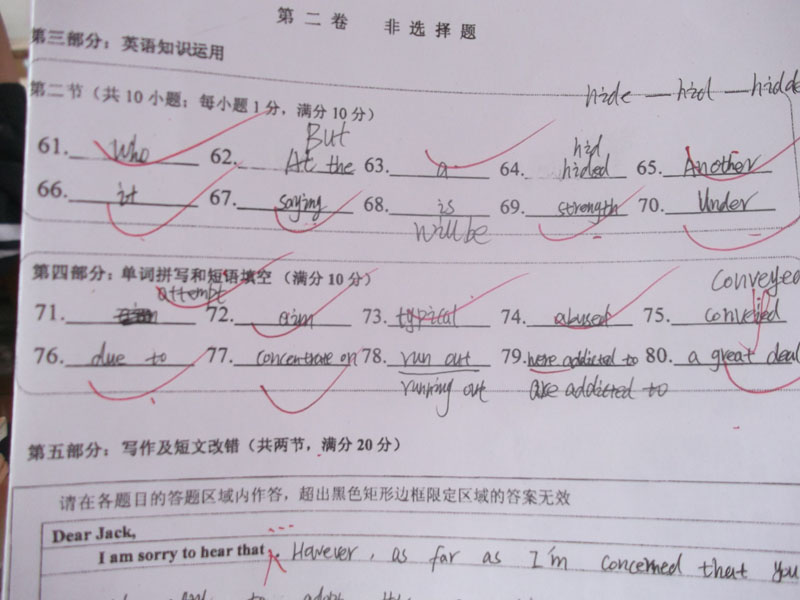 第二卷 非选择题
第三部分：英语知识运用
第二节（共 10 小题；每小题 1 分，满分 10 分）
hide — hid — hidde
But
hid
61. who 62. At the 63. a 64. hided 65. Another
66. it 67. saying 68. is 69. strength 70. Under
will be
第四部分：单词拼写和短语填空（满分 10 分）
conveyed
attempt
71. 72. aim 73. typical 74. abused 75.
76. due to 77. concentrate on 78. run out 79. were addicted to 80. a great deal
running out are addicted to
第五部分：写作及短文改错（共两节，满分 20 分）
请在各题目的答题区域内作答，超出黑色矩形边框限定区域的答案无效
Dear Jack,
I am sorry to hear that ... However, as far as I'm concerned that you